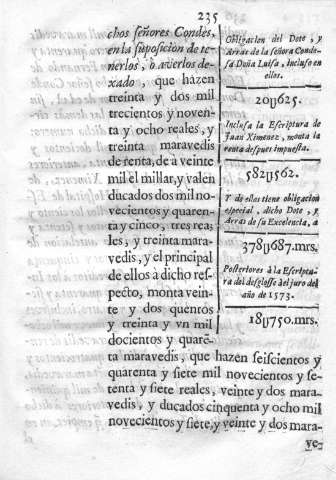 235
chos señores Condes,
en la suposicion de te-
nerlos, ò averlos de-
xado, que hazen
treinta y dos mil
trecientos y noven-
ta y ocho reales, y
treinta maravedis
de renta, de à veinte
mil el millar, y valen
ducados dos mil no-
vecientos y quaren-
ta y cinco, tres rea-
les, y treinta mara-
vedis, y el principal
de ellos à dicho res-
pecto, monta vein-
te y dos quentos
y treinta y vn mil
docientos y quarē-
ta maravedis, que hazen seiscientos y
quarenta y siete mil novecientos y se-
tenta y siete reales, veinte y dos mara-
vedis, y ducados cinquenta y ocho mil
novecientos y siete, y veinte y dos mara-
ve-
Obligacion del Dote, y
Arras de la señora Conde-
sa Doña Luisa, incluso en
ellos.
20ų625.
Inclusa la Escriptura de
Juan Ximenez, monta la
renta despues impuesta.
582ų562.
Y de ellas tiene obligacion
especial, dicho Dote, y
Arras de su Excelencia, a
378ų687.mrs.
Posteriores à la Escriptu-
ra del desglosse del juro del
año de 1573.
18ų750.mrs.